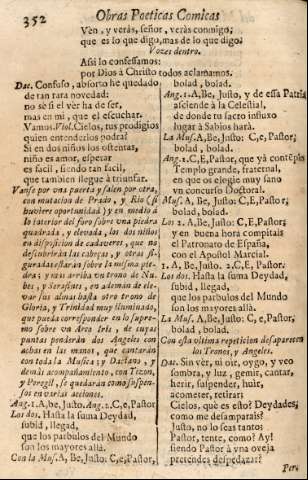 352 Obras Poeticas Comicas
Vèn, y veràs, señor, veràs conmigo;
que es lo que digo, mas de lo que digo.
Vozes dentro.
Assi lo confessamos:
por Dios à Christo todos aclamamos.
Dac. Confuso, absorto he quedado
de tan rara novedad:
no sè si el vèr ha de ser,
mas en mi, que el escuchar.
Vamos. Viol. Cielos, tus prodigios
quien entenderlos podra?
Si en dos niños los ostentas,
niño es amor, esperar
es facil, siendo tan facil,
que tambien llegue à triunfar.
Vanse por una puerta y salen por otra,
con mutacion de Prado, y Rio (si
huviere oportunidad) y en medio à
lo interior del foro sobre una piedra
quadrada, y elevada, los dos niños
en disposicion de cadaveres, que no
descubriràn las cabeças, y otras fi-
guradas estaràn sobre la misma pie-
dra; y mas arriba un trono de Nu-
bes, y Serafines, en ademàn de ele-
var sus almas hasta otro trono de
Gloria, y Trinidad muy iluminado,
que pueda corresponder en lo supre-
mo sobre un Arco Iris, de cuyas
puntas penderàn dos Angeles con
achas en las manos, que cantaràn
con toda la Musica; y Daciano, y
demàs acompañamiento, con Tizon,
y Peregil, se quedaràn como suspen-
sos en varias acciones.
Ang. 1. A, be, Justo. Ang. 2. C, e, Pastor.
Los dos. Hasta la suma Deydad,
subid, llegad,
que los parbulos del Mundo
son los mayores allà.
Con la Mus. A, Be, Justo: C, e, Pastor.
bolad, bolad.
Ang. 1. A, Be, Justo, y de essa Patria
asciende à la Celestial,
de donde tu sacro influxo
lugar à Sabios harà.
La Mus. A, Be, Justo: C, E, Pastor;
bolad, bolad.
Ang. 2. C, E, Pastor, que yà contẽpla
Templo grande, fraternal,
en que os elegie muy sano
vn concurso Doctoral.
Mus. A, Be, Justo: C, E, Pastor;
bolad, bolad.
Los 2. A, Be, Justo: C, e, Pastor;
y en buena hora compitais
el Patronato de España,
con el Apostol Marcial.
1. A, Be, Justo. 2. C, E, Pastor.
Los dos. Hasta la suma Deydad,
subid, llegad,
que los parbulos del Mundo
son los mayores allà.
La Mus. A, Be, Justo: C, e, Pastor;
bolad, bolad.
Con esta ultima repeticion desaparecen
los Tronos, y Angeles.
Dac. Sin vèr, ni oìr, oygo, y veo
sombra, y luz, gemir, cantar,
herir, suspender, huìr,
acometer, retirar:
Cielos, què es esto? Deydades,
como me desamparais?
Justo, no lo seas tanto:
Pastor, tente, como? Ay!
siendo Pastor à vna oveja
pretendes despedazar?
Per